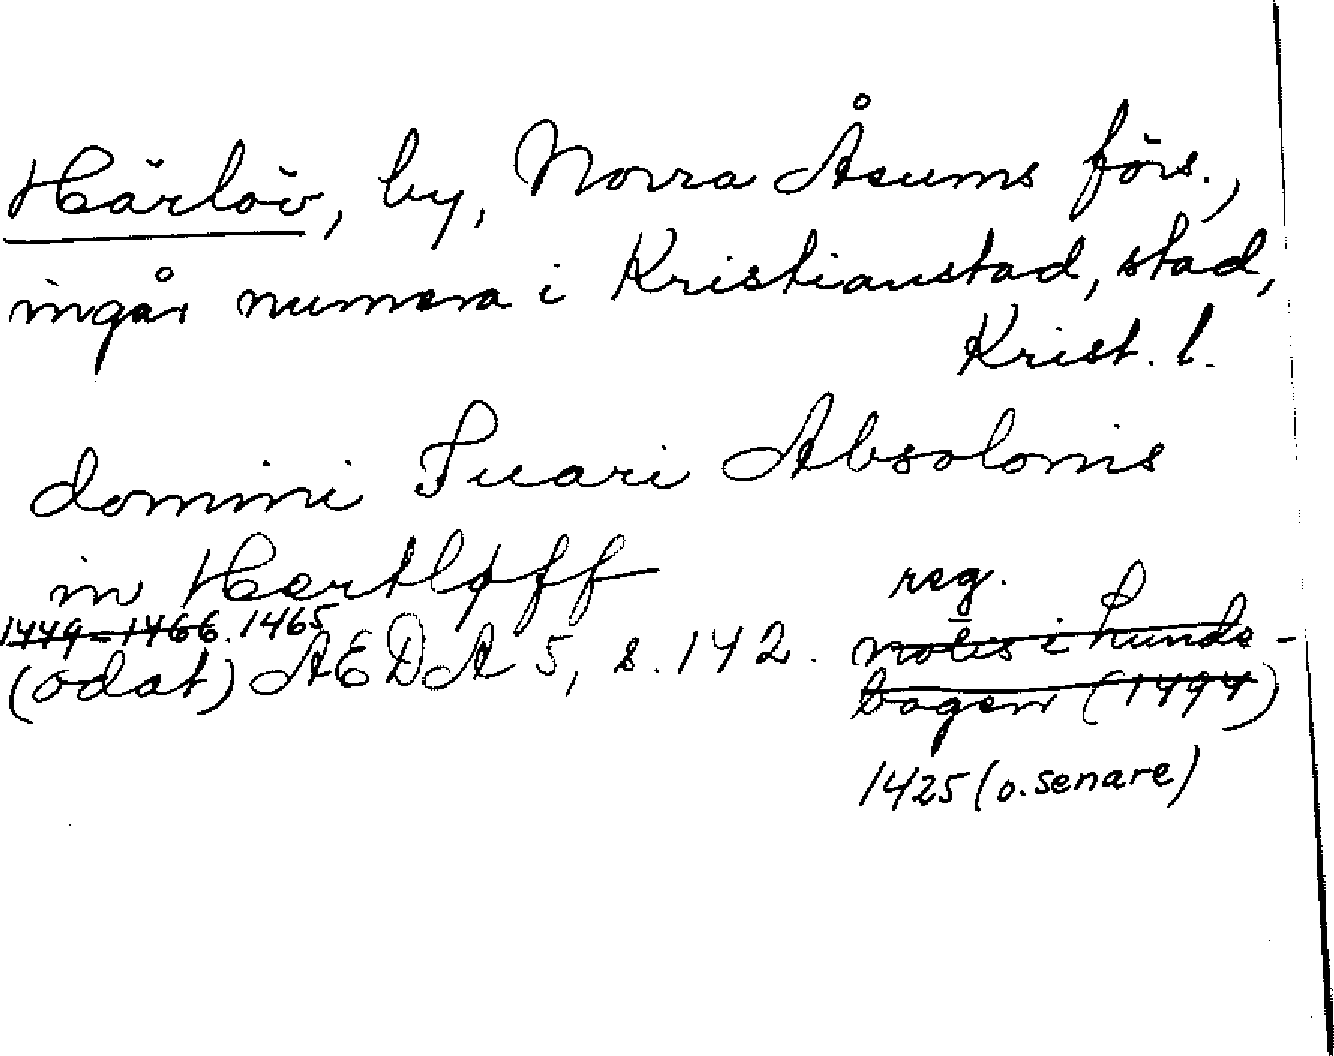 Härlöv, by, Norra Åsums förs.,
ingår numera i Kristianstad, stad,
Krist. l.
domini Tuari Absolonis
in Hertløff
reg.
1449-1466. 1465
(odat) AEDA 5, s. 142. notes i Lunds-
bogen (1494)
1425 (o. senare)